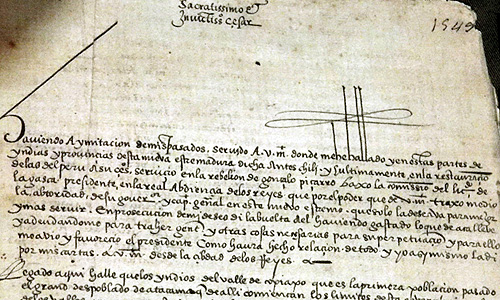 Sacratissimo e
Invictissº Cesar
1549
Haviendo A ymitacion de mis pasados, servido A. v. mᵗ. donde me he hallado y en estas partes de
yndias y provincias desta nueva estremadura dicha Antes chili y ultimamente, en la restauracion
de las del peru A su ces. servicio en la rebelion de gonzalo pizarro baxo la comission del liᵈᵒ. de
la gasca presidente, en la real Abdiençia de los reyes que por el poder que de v. m. traxo me dio
la abtoridad, de su gover. y cap. general en este nuevo estremo. que solo la deseava para mejor
y mas servir. En prosecucion de mi deseo di la buelta del haviendo gastado lo que de aca lleve
y adeudandome para traher gente y otras cosas necesarias para su perpetuaçion y para ello
me avio y favoreçio el presidente Como havra hecho relaçion de todo y yo asymismo la di
por mis cartas. A. v. m. desde la abdad de los Reyes
legado aqui halle que los yndios del valle de copiapo que es la primera poblaçion pasado
el grand despoblado de atacama que de alli comiençan los limites desta